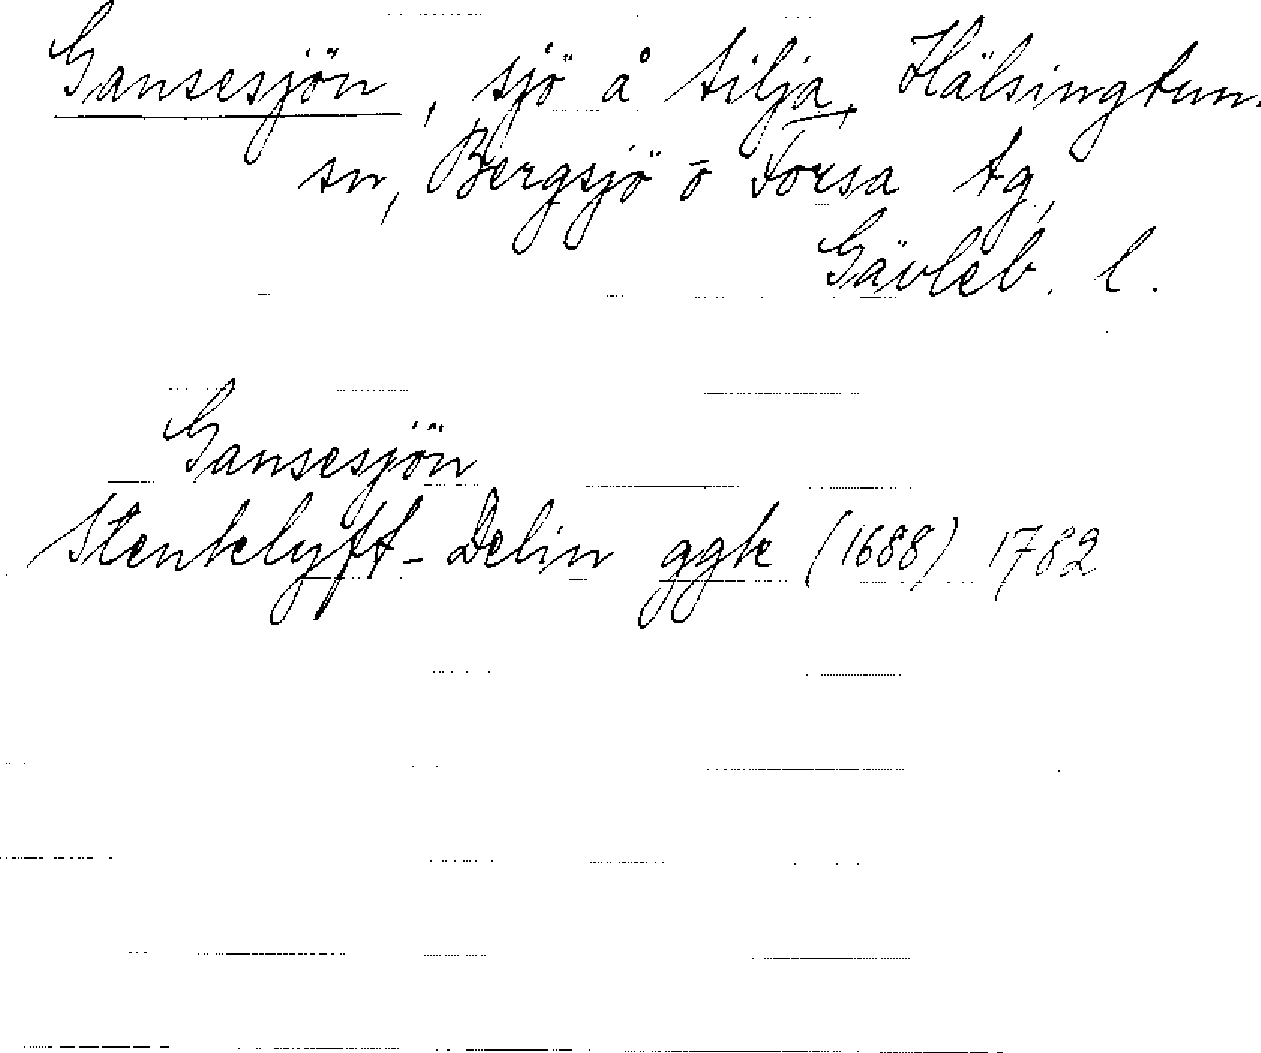 Gansesjön, sjö å tilja, Hälsingtun.
sn, Bergsjö o Forsa tg,
Gävleb. l.
Gansesjön
Stenklyft-Delin ggk (1688) 1782